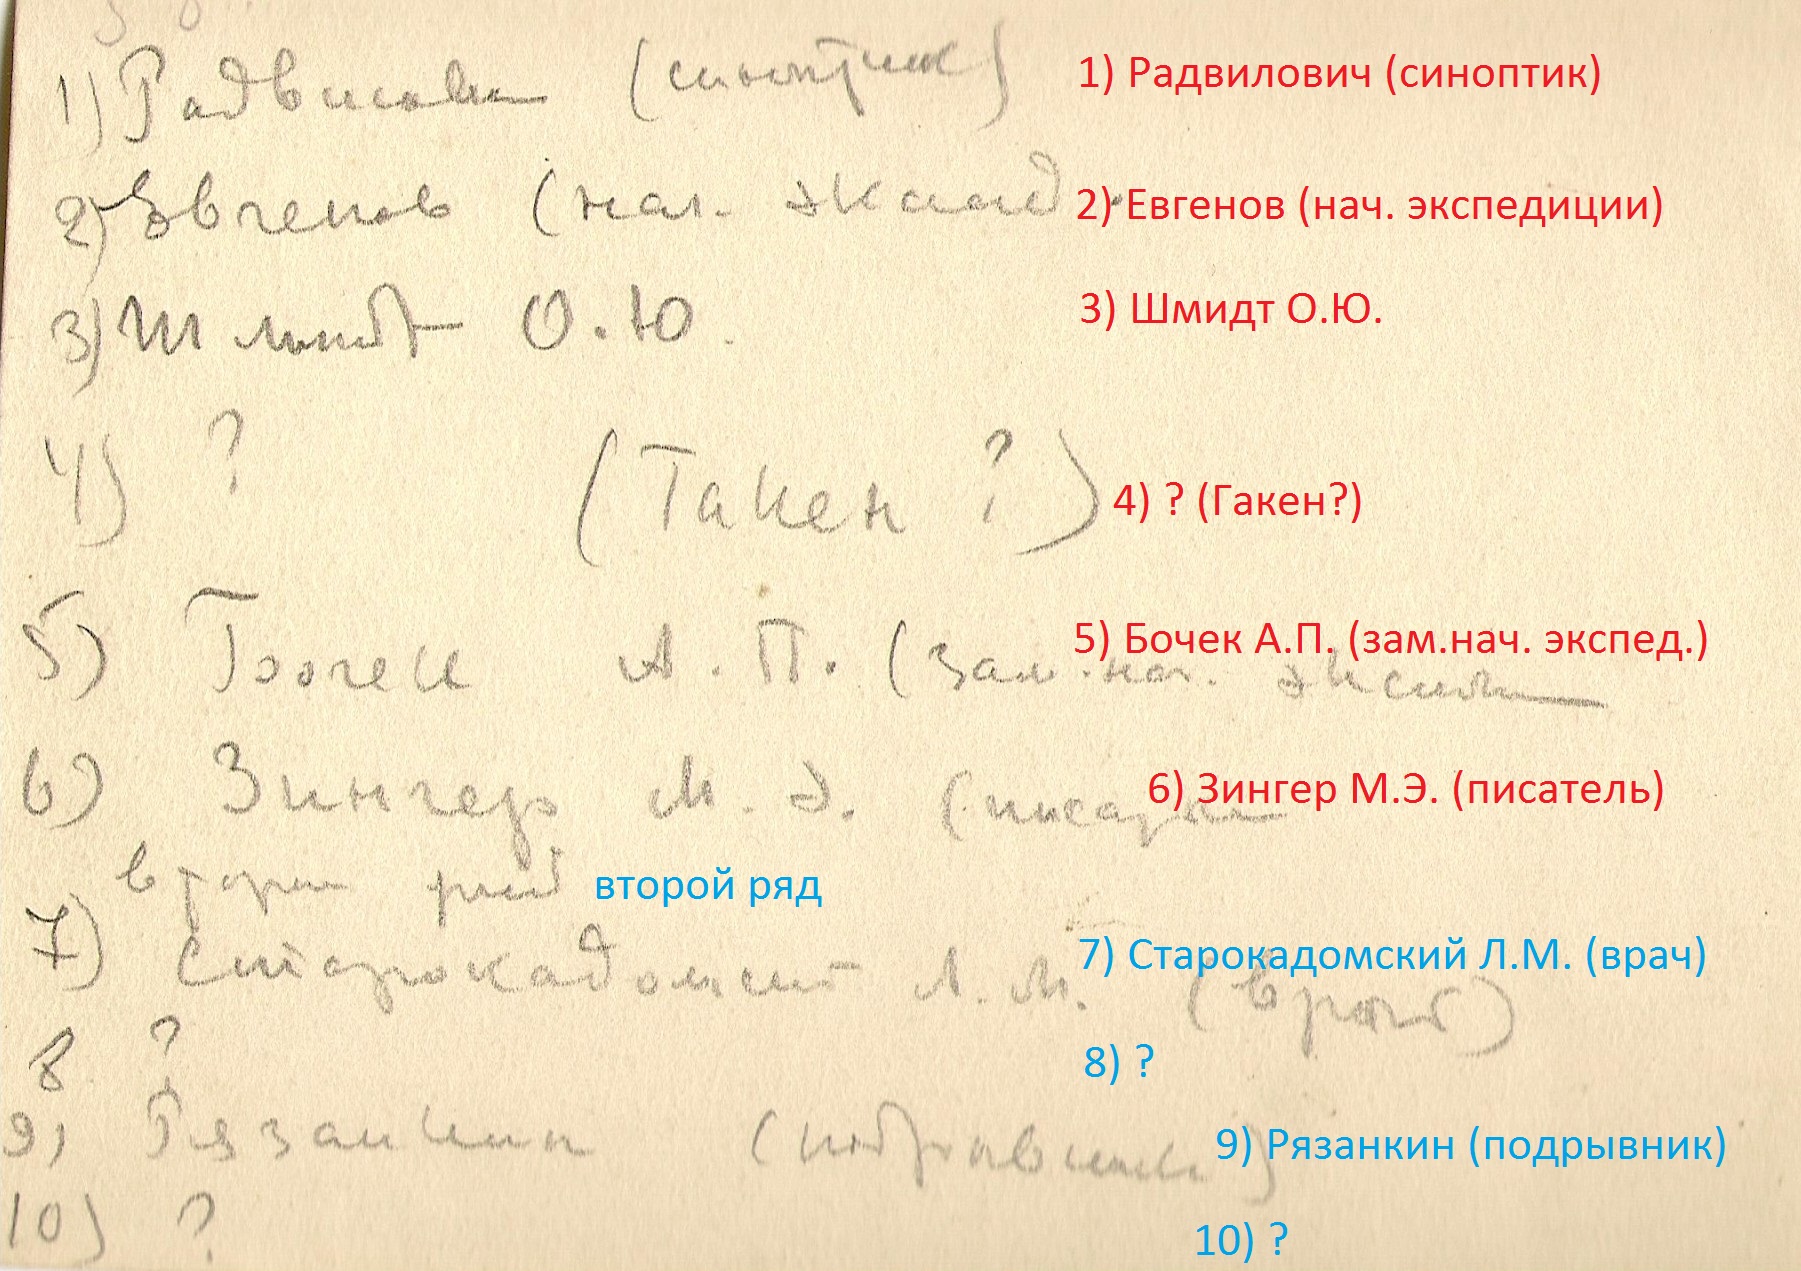 1) Радвилович (синоптик) 1) Радвилович (синоптик)
2) Евгенов (нач. эксп 2) Евгенов (нач. экспедиции)
3) Шмидт О.Ю. 3) Шмидт О.Ю.
4) ? (Гакен ?) 4) ? (Гакен?)
5) Бочек А.П. (зам.нач. эксп 5) Бочек А.П. (зам.нач. экспед.)
6) Зингер М.Э. (писатель 6) Зингер М.Э. (писатель)
второй ряд второй ряд
7) Старокадомский Л.М. (врач) 7) Старокадомский Л.М. (врач)
8 ? 8) ?
9) Рязанкин (подрывник) 9) Рязанкин (подрывник)
10) ? 10) ?